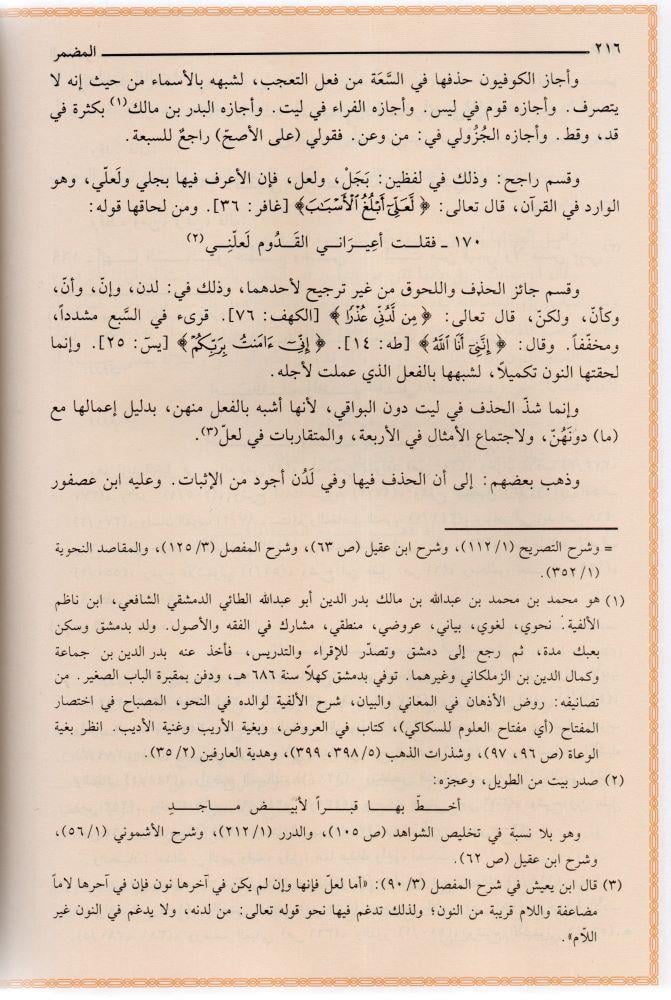 ٢١٦ المضمر
وأجاز الكوفيون حذفها في السَّعَة من فعل التعجب، لشبهه بالأسماء من حيث إنه لا
يتصرف. وأجازه قوم في ليس. وأجازه الفراء في ليت. وأجازه البدر بن مالك(١) بكثرة في
قد، وقط. وأجازه الجُزُولي في: من وعن. فقولي (على الأصحّ) راجعٌ للسبعة.
وقسم راجح: وذلك في لفظين: بَجَلْ، ولعل، فإن الأعرف فيها بجلي ولَعلّي، وهو
الوارد في القرآن، قال تعالى: ﴿ لَّعَلِّىٓ أَبْلُغُ ٱلْأَسْبَٰبَ﴾ [غافر: ٣٦]. ومن لحاقها قوله:
١٧٠ ـ فقلت أعِيرَانـي القَـدُوم لَعلّنِـي(٢)
وقسم جائز الحذف واللحوق من غير ترجيح لأحدهما، وذلك في: لدن، وإنّ، وأنّ،
وكأنّ، ولكنّ، قال تعالى: ﴿ مِن لَّدُنِّى عُذْرًا ﴾ [الكهف: ٧٦]. قرىء في السَّبع مشدداً،
ومخفّفاً. وقال: ﴿ إِنَّنِىٓ أَنَا ٱللَّهُ ﴾ [طه: ١٤]. ﴿ إِنِّىٓ ءَامَنتُ بِرَبِّكُمْ ﴾ [يسٓ: ٢٥]. وإنما
لحقتها النون تكميلاً، لشبهها بالفعل الذي عملت لأجله.
وإنما شذّ الحذف في ليت دون البواقي، لأنها أشبه بالفعل منهن، بدليل إعمالها مع
(ما) دونَهُنّ، ولاجتماع الأمثال في الأربعة، والمتقاربات في لعلّ(٣).
وذهب بعضهم: إلى أن الحذف فيها وفي لَدُن أجود من الإثبات. وعليه ابن عصفور
= وشرح التصريح (١/ ١١٢)، وشرح ابن عقيل (ص ٦٣)، وشرح المفصل (٣/ ١٢٥)، والمقاصد النحوية
(١/ ٣٥٢).
(١) هو محمد بن محمد بن عبدالله بن مالك بدر الدين أبو عبدالله الطائي الدمشقي الشافعي، ابن ناظم
الألفية: نحوي، لغوي، بياني، عروضي، منطقي، مشارك في الفقه والأصول. ولد بدمشق وسكن
بعبك مدة، ثم رجع إلى دمشق وتصدّر للإقراء والتدريس، فأخذ عنه بدر الدين بن جماعة
وكمال الدين بن الزملكاني وغيرهما. توفي بدمشق كهلًا سنة ٦٨٦ هـ، ودفن بمقبرة الباب الصغير. من
تصانيفه: روض الأذهان في المعاني والبيان، شرح الألفية لوالده في النحو، المصباح في اختصار
المفتاح (أي مفتاح العلوم للسكاكي)، كتاب في العروض، وبغية الأريب وغنية الأديب. انظر بغية
الوعاة (ص ٩٦، ٩٧)، وشذرات الذهب (٥/ ٣٩٨، ٣٩٩)، وهدية العارفين (٢/ ٣٥).
(٢) صدر بيت من الطويل، وعجزه:
أخــطّ بهــا قبــراً لأبيــض مــاجــدِ
وهو بلا نسبة في تخليص الشواهد (ص ١٠٥)، والدرر (١/ ٢١٢)، وشرح الأشموني (١/ ٥٦)،
وشرح ابن عقيل (ص ٦٢).
(٣) قال ابن يعيش في شرح المفصل (٣/ ٩٠): «أما لعلّ فإنها وإن لم يكن في آخرها نون فإن في آخرها لاماً
مضاعفة واللام قريبة من النون؛ ولذلك تدغم فيها نحو قوله تعالى: من لدنه، ولا يدغم في النون غير
اللّام».